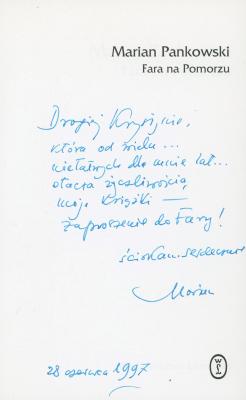 Marian Pankowski
Fara na Pomorzu
Drogiej Krysi,
która od wielu...
niełatwych dla mnie lat...
otacza życzliwością
moje książki —
zaproszenie do Fary!
ściskam serdecznie
Marian
28 czerwca 1997
WL